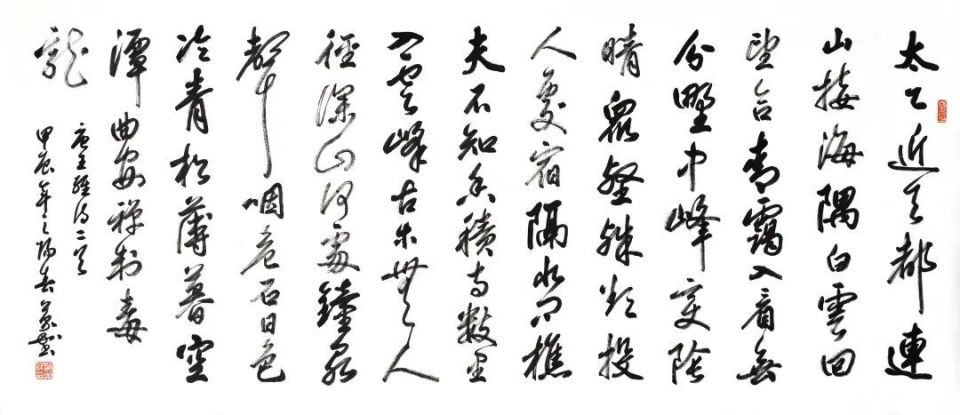 太乙近天都連
山接海隅白雲回
望合青靄入看無
分野中峰变陰
晴眾壑殊欲投
人处宿隔水问樵
夫不知香積寺数里
入雲峰古木無人
徑深山何處鐘泉
聲咽危石日色
冷青松薄暮空
潭曲安禅制毒
龍
唐王維诗二首
甲辰年之陽春